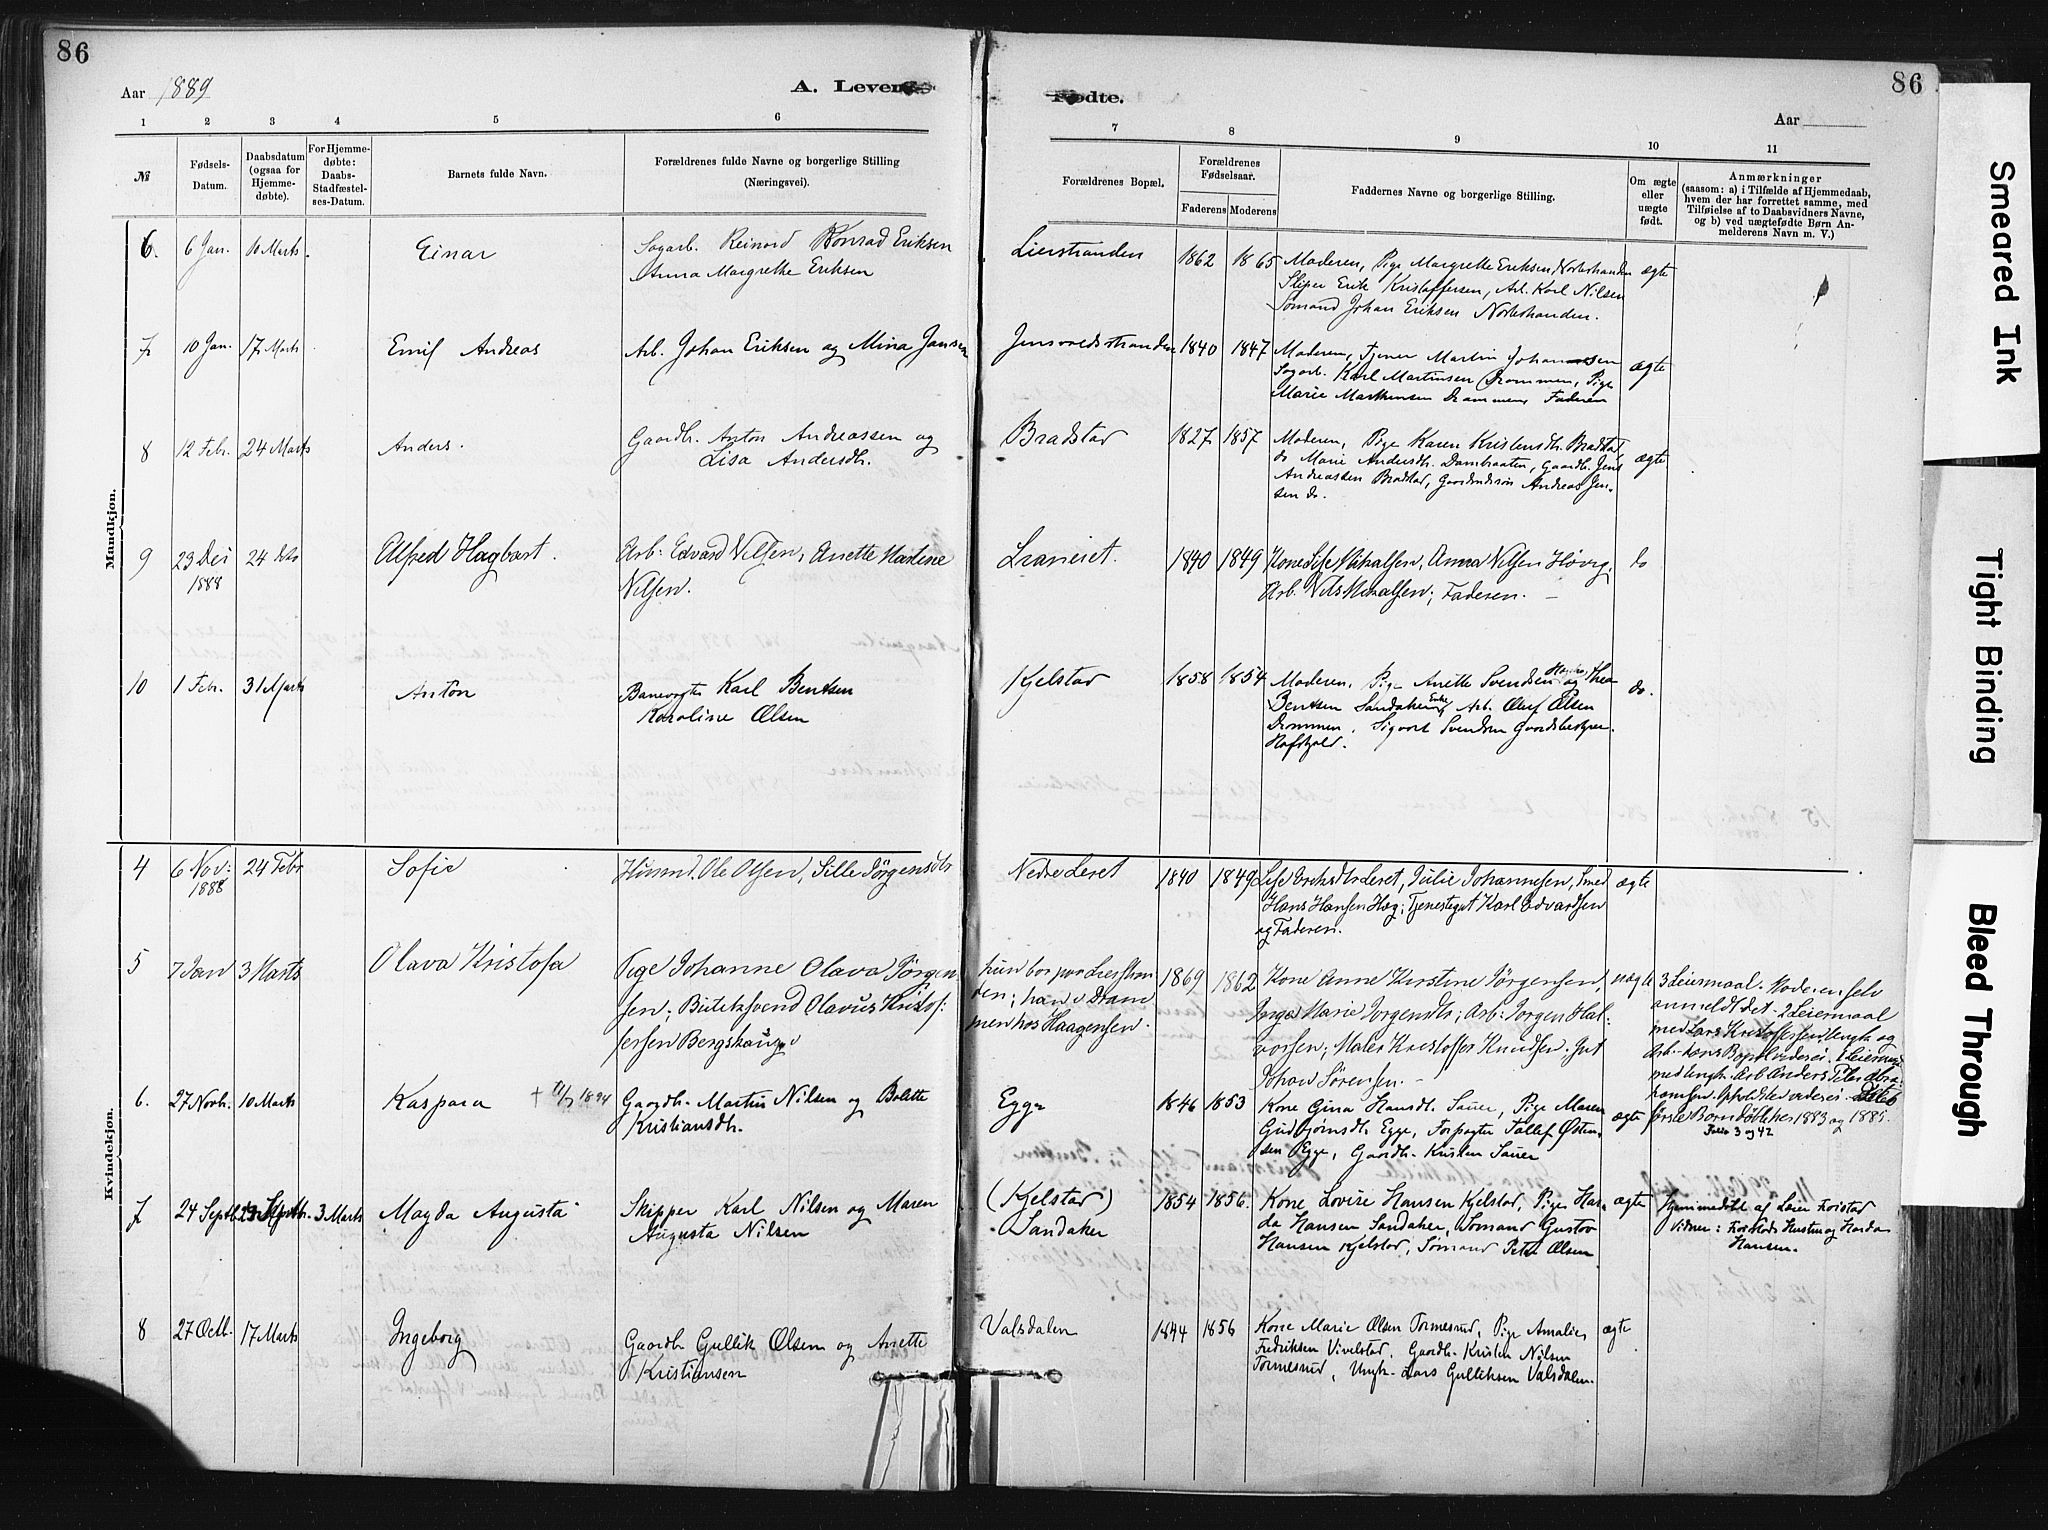 86
Aar 1889
A. Levende
1 2 3 4 5 6
№ Fødsels-Datum. Daabsdatum (ogsaa for Hjemmedøbte). For Hjemmedøbte: Daabs-Stadfæstelses-Datum. Barnets fulde Navn. Forældrenes fulde Navne og borgerlige Stilling (Næringsvei).
Mandkjøn.
6. 6 Jan. 10 Marts Einar Sagarb. Reinard Konrad Eriksen
Anna Margrethe Eriksen
7 10 Jan. 17 Marts Emil Andreas Arb. Johan Eriksen og Mina Jansen
8 12 Febr. 24 Marts Anders. Gaardb. Anton Andreassen og
Lisa Andersdtr.
9 23 Dec 24 do Alfred Hagbart. Arb: Edvard Nilsen, Anette Martine
1888 Nilsen.
10 1 Febr. 31 Marts Anton Banevogter Karl Bentsen
Karoline Olsen
Kvindekjøn.
4 6 Nov: 24 Febr Sofie Husmd. Ole Olsen, Sille Jørgensdtr
1888
5 7 Jan 3 Marts Olava Kristofa Pige Johanne Olava Jørgen
sen; Butiksvend Olavus Kristof:
fersen Bergshaug
6. 27 Novbr. 10 Marts Kaspara + 11/7 1894 Gaardb. Martin Nilsen og Bolette
Kristiansdtr.
7 24 Septb. 3 Marts Magda Augusta Skipper Karl Nilsen og Maren
Augusta Nilsen
8 27 Octb. 17 Marts Ingeborg Gaardb. Gullik Olsen og Anette
Kristiansen
86
Fødte.
Aar
7 8 9 10 11
Forældrenes Bopæl. Forældrenes Fødselsaar. Faderens Moderens Faddernes Navne og borgerlige Stilling. Om ægte eller uægte født. Anmærkninger
(saasom: a) i Tilfælde af Hjemmedaab,
hvem der har forrettet samme, med
Tilføielse af to Daabsvidners Navne,
og b) ved uægtefødte Børn An-
melderens Navn m. V.)
Lierstranden 1862 1865 Moderen, Pige Margrethe Eriksen Nøstestranden ægte
Sliper Erik Kristoffersen, Arb. Karl Nilsen
Sømand Johan Eriksen Nøstestranden.
Jensvoldstranden 1840 1847 Moderen, Tjener Martin Johannesen ægte
Sagarb. Karl Martinsen Drammen, Pige
Marie Martinsen Drammen, Faderen
Bradstad 1827 1857 Moderen, Pige Karen Kristensdtr. Bradstad, ægte
do Marie Andersdtr. Dambraaten, Gaardb. Jens
Andreassen Bradstad, Gaardmandssøn Andreas Jen-
sen do.
Lraneiet. 1840 1849 Kone Lise Mikalsen, Anna Nilsen Høvig, do
Arb. Nils Mikalsen, Faderen. –
Kjelstad 1858 1854 Moderen, Pige Anette Svendsen og Thea do.
Bentsen Sandaker, Arb. Oluf Olsen
Drammen, Sigvart Svendsen Gaardsbestyrer
Hofshold.
Nedre Leret 1840 1849 Lise Eriksdtr Leret, Julie Johannesen, Smed ægte
Hans Hansen Hæg; Tjenestegut Karl Edvardsen
og Faderen.
hun bor paa Lierstran 1869 1862 Kone Anne Kirstine Jørgensen, uægte 3 Leiermaal. Moderen selv
den; han i Dram Inga Marie Jørgensdtr; Arb: Jørgen Hal- anmeldt det – 2 Leiermaal
men hos Haagensen. vorsen; Maler Kristoffer Knudsen. Gut med Lars Kristoffersen Ungk. og
Johan Sørensen. –
Egge 1846 1853 Kone Gina Hansdtr. Sauer, Pige Maren ægte første Børn døbt her 1883 og 1885.
Gudbjørnsdtr. Egge, Forpagter Tollef Østen- Folio 3 og 42
sen Egge, Gaardb. Kristen Sauer
(Kjelstad) 1854 1856. Kone Lovise Hansen Kjelstad, Pige Har- ægte Hjemmedøbt af Læier Forstad
Sandaker da Hansen Sandaker, Sømand Gustav Vidner: Forstads Hustru og Harda
Hansen Kjelstad, Sømand Peter Olsen Hansen.
Valsdalen 1844 1856 Kone Marie Olsen Tormesrud, Pige Amalie ægte
Fredriksen Vivelstad, Gaardb. Kristen Nilsen
Tormesrud, Ungk. Lars Gulliksen Valsdalen.
Smeared Ink
Tight Binding
Bleed Through